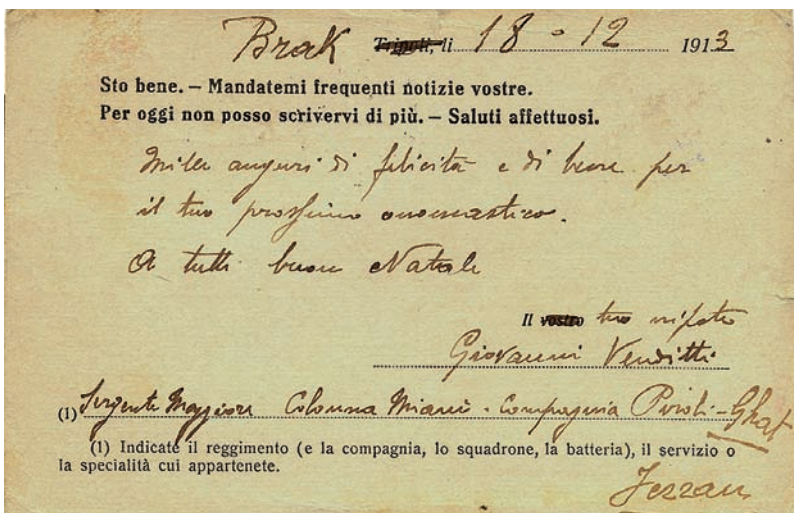 Brak Tripoli, li 18 - 12 1913
Sto bene. – Mandatemi frequenti notizie vostre.
Per oggi non posso scrivervi di più. – Saluti affettuosi.
Mille auguri di felicità e di bene per
il tuo prossimo onomastico.
A tutti buon Natale
Il vostro tuo nipote
Giovanni Venditti
(1) Sergente Maggiore Colonna Miani - Compagnia Piroli - Ghat
(1) Indicate il reggimento (e la compagnia, lo squadrone, la batteria), il servizio o
la specialità cui appartenete.
Fezzan